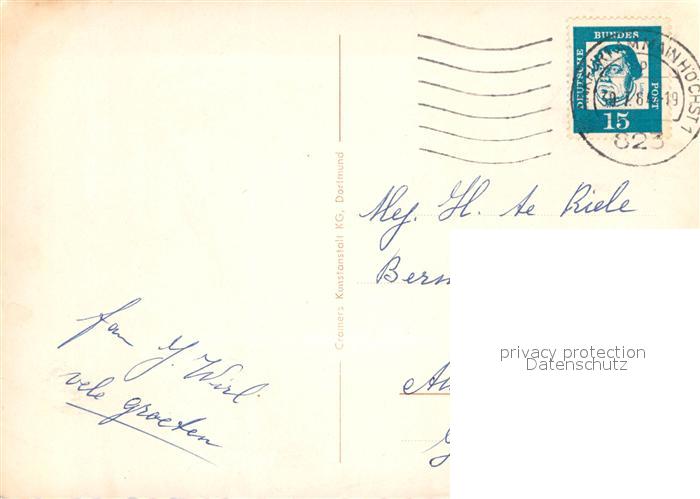 DEUTSCHE BUNDES POST
15
MAIN HÖCHST 1
-19
623
Cramers Kunstanstalt KG, Dortmund
Mej. H. te Riele
Bern
fam Y. Wirl
vele groeten
privacy protection
Datenschutz